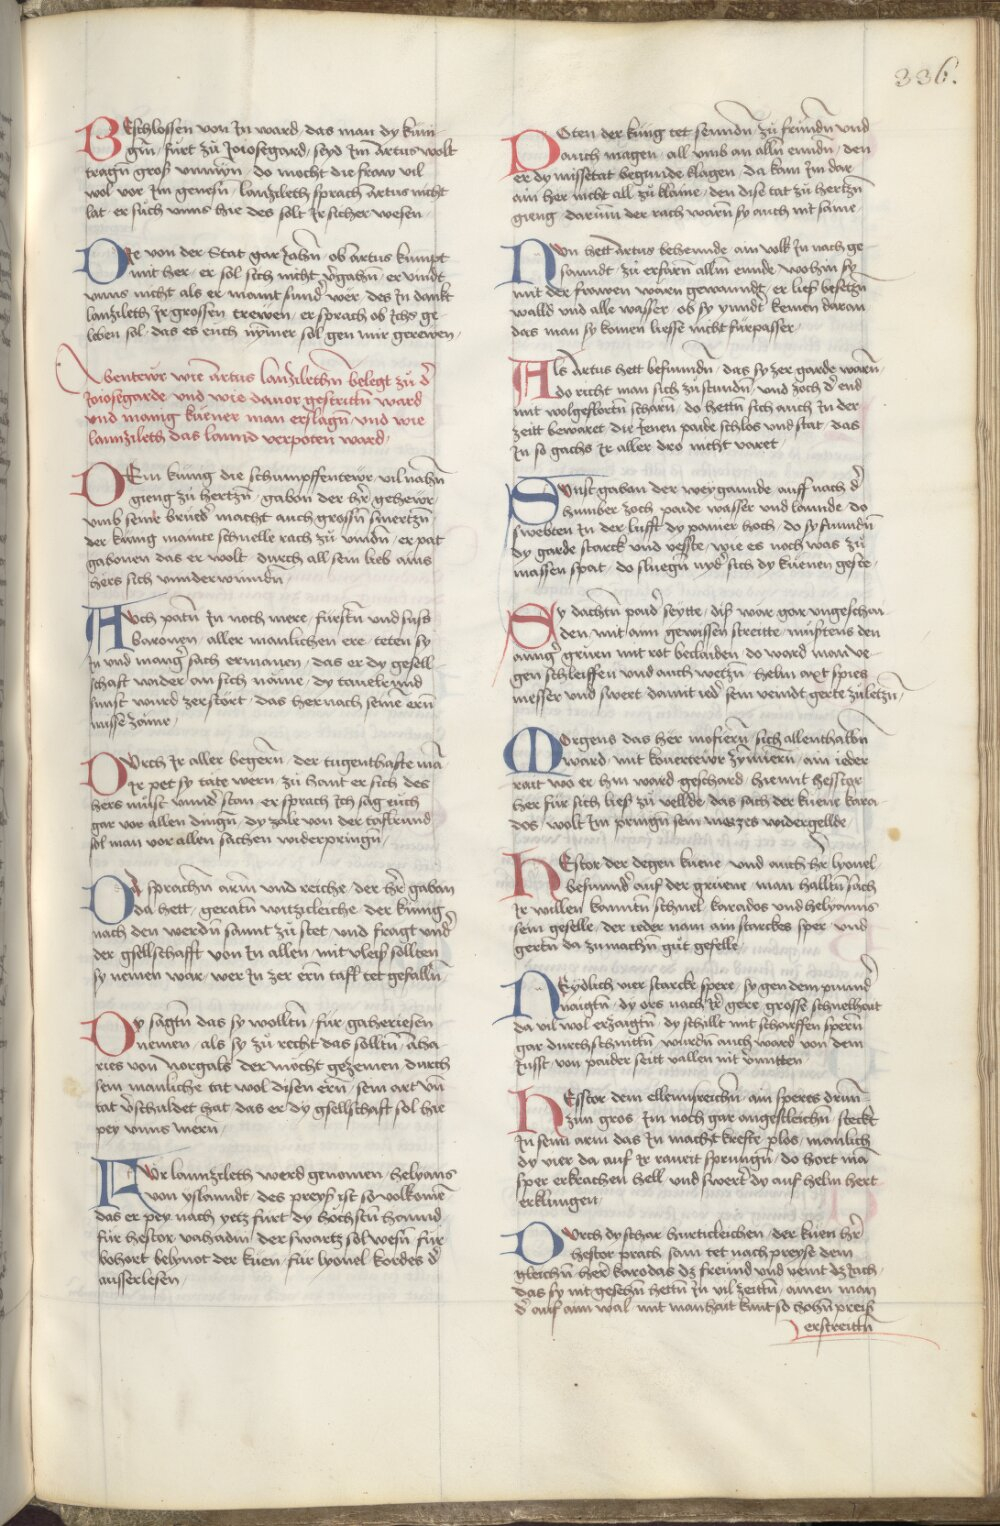 336.
BEschlossen von In ward, das man dy küni
gin, fürt zů Joiosegard, seyd Im Artus wolt
tragn̄ gros vnmŷn, do mocht die fraw vil
wol vor Im genesn̄, lanzileth sprach Artus nicht
lat, er sůch vnns hie des solt Ir sicher wesen,
DRe von der Stat gar Zahn̄, ob Artus kumpt
mit her, er sol sich nicht v̄gahn̄, er vindt
vnns nicht als er maint sund̄ wer, des In dankt
lanzileth Ir grossen trewen, er sprach ob Ichs ge
leben sol, das es euch nÿmer sol gen mir gerewen,
Abentewr wie Artus lanzilethn̄ belegt zů d̄
Joiosegarde, vnd wie dauor gestrittn̄ ward
vnd manig küener man erslagn̄, vnd wie
lannzileth das lannd verpoten ward,
DEm küng die schumpffentewr, vil nahn̄
gieng zů hertzn̄, gabon der hr̄, gehewr,
vmb seine brüed̄ macht auch grossn̄ smertzn̄,
der küng mante schnelle rach zů vindn̄, er pat
gabonen das er wolt, durch all sein lieb ains
hers sich vnnderwindn̄
AVch patn̄ In noch mere, fürstn̄ vnd suss
baronen, aller manlichen ere, teten sy
In vnd manḡ sach ermanen, das er dy gesell
schaft wider an sich näme, dy tauelrund
sunst wurd zerstört, das hernach seinē ern̄
misse zäme,
DVrch Ir aller begern̄, der tugenthafte mā
Ir pet sy täte wern, zů hant er sich des
hers můst vnnd̄ stan, er sprach Ich sag euch
gar vor allen dingn̄, dy zale von der taflrund
sol man vor allen sachen widerpringn̄,
DA sprachn̄ arm vnd reiche, der hr̄ gaban
da hett, geratn̄ witzicleiche, der künig
nach den werdn̄ sannt zů stet, vnd fragt vnd̄
der gsellschafft von In allen, mit vleis solltten
sy nemen war, wer In zer ern̄ tafl tet gefalln̄
DY sagtn̄ das sy wolltn̄, für gaheriesen
nemen, als sy zů recht das solltn̄, Atha
ries von norgals der möcht gezemen, durch
sein manliche tat wol disen ern̄, sein art vn̄
tat v̄schuldet hat, das er dy gsellschaft sol hie
pey vnns mern̄,
FVr lannzileth werd genomen, helyans
von yslanndt, des preys ist so volkomē
das er pey nach yetz fürt dy höchstn̄ hannd
für hector vahadin, der swartz sol wesn̄, für
bohort belynot der küen, für lyonel kordes d̄
ausserlesen,
POten der küng tet sennndn̄, zů fründn̄ vnd
auch magen, all vmb an alln̄ enndn̄, den
er dy missetat begunde klagen, da kam Im dar
ain her nicht all zů klaine, den dise tat zů hertzn̄
gieng, darum̄ der rach warn̄ sy auch nit saine,
NVn hett Artus behennde, ain volk In nach ge
sanndt, zů erfarn̄ alln̄ ennde, wohin sy
mit der frawen wärn gewanndt, er lies besetzn̄
walld vnd alle wasser, ob sy yndt̄ kemen daran
das man sy komen liesse nicht fürpasser,
ALs Artus hett befunndn̄, das sy zer garde warn̄
do richt man sich zů stundn̄, vnd zoch d̄ end
mit wolgeflortn̄ scharn̄, do hettn̄ sich auch In der
zeitt bewaret, die Jenen paide schlos vnd stat, das
In so gachs Ir aller dro nicht varet,
SVnst gaban der weygannde, auff nach d̄
humber zoch, paide wasser vnd lannde, do
swebten In der lufft dy paner hoch, do sy fundn̄
dy garde starck vnd veste, wie es noch was zů
massen spat, do sluegn̄ nyd̄ sich dy küenen geste,
SY dachtn̄ paid̄ seytte, dis wär gar vngeschai
den, mit ainn gewissen streitte, müstens den
annḡ grüen mit rot beclaiden, do ward manne
gen schleiffen vnd auch wetzn̄, helm axt spies
messer vnd swert damit ied̄ sein veindt gerte zů letzn̄,
MOrgens das her mosiern̄, sich allenthalbn̄
ward, mit konertewr zÿmiern̄, ain ieder
rait wo er hin ward geschard, hiemit hesstor
her für sich lies zů vellde, das sach der küene kara
dos, wolt Im pringn̄ sein morzes widergellde,
HEstor der degen küene, vnd auch hr̄ lyonel,
besunnd̄ auf der grüene, man halltn̄ sach
Ir willen kanntn̄ schnel, karados vnd helyanns
sein geselle, der ieder nam ain starckes sper, vnd
gertn̄ da zumachn̄ gůt geselle,
NEydlich vier starcke spere, sy gen dem punnd̄
naigtn̄, dy ors nach Ir̄ gere, grosse schnelhait
da vil wol erzaigtn̄, dy schillt mit scharffen spern̄
gar durchschnittn̄, wurdn̄ auch ward von dem
Just, von paider seitt vallen nit v̄mitten
HEsstor dem ellennsreichn̄, ain speres drum̄=
zün gros, Im noch gar angestleichn̄, steckt
In seim̄ arm das In macht krefte plos, manlich
dy vier da auf Ir raueit sprungn̄, do hort mā
sper erkrachen hell, vnd swert̄ dy auf helm hert
erklungen,
DVrch dy schar hurticleichen, der küen hr̄
hestor prach, sam tet nach preyse dem
gleichn̄ her̄ karodas dz freund vnd veint dz Jach,
das sy nit gesehn̄ hettn̄ In vil zeittn̄, ainen man
d̄ auf ainn wal, mit manhait kunt so hohn̄ preis
erstreittn̄